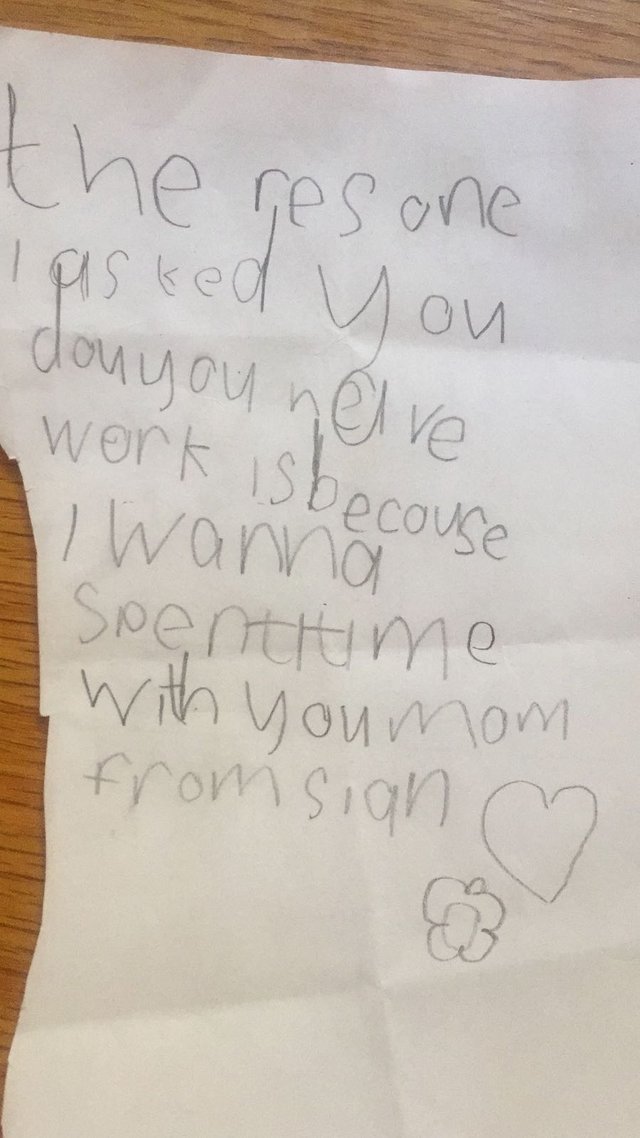 the resone
I asked you
dou you heve
work is becouse
I wanna
spent time
with you mom
from sian